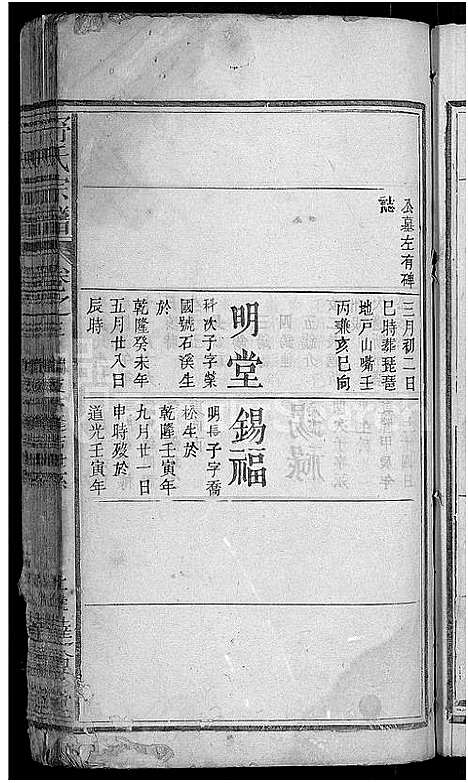 公墓左有碑
誌
三月初二日
巳時葬琵琶
地戸山嘴壬
丙兼亥巳向
明堂
科次子字榮
國號石溪生
於
乾隆癸未年
五月廿八日
辰時
錫福
明長子字喬
松生於
乾隆壬寅年
九月廿一日
申時歿於
道光壬寅年
舒氏宗譜
卷之